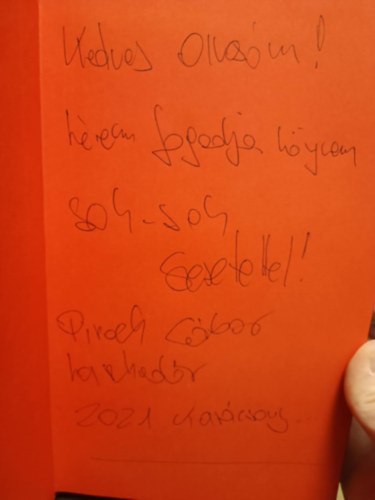 Kedves Olvasóm!
kérem fogadja könyvem
sok-sok
szeretettel!
Piroch Gábor
kaszkadőr
2021 Karácsony..